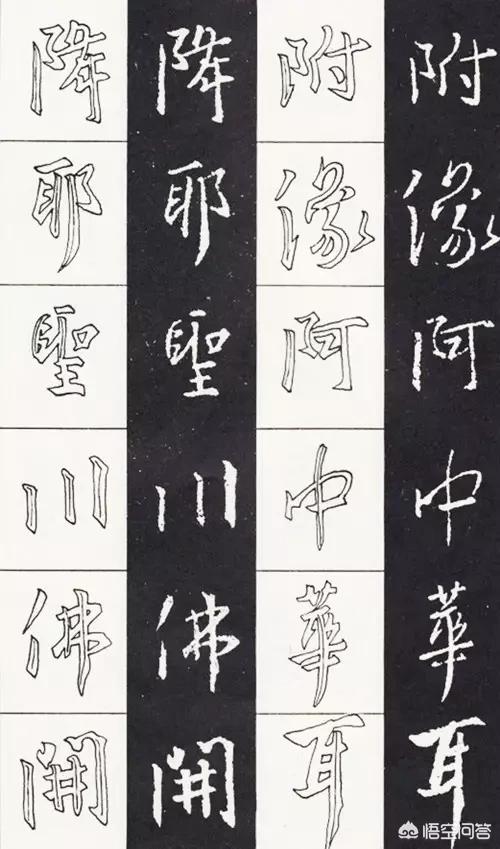 附緣阿中華耳
附緣阿中華耳
降耶聖川佛開
降耶聖川佛開
悟空问答